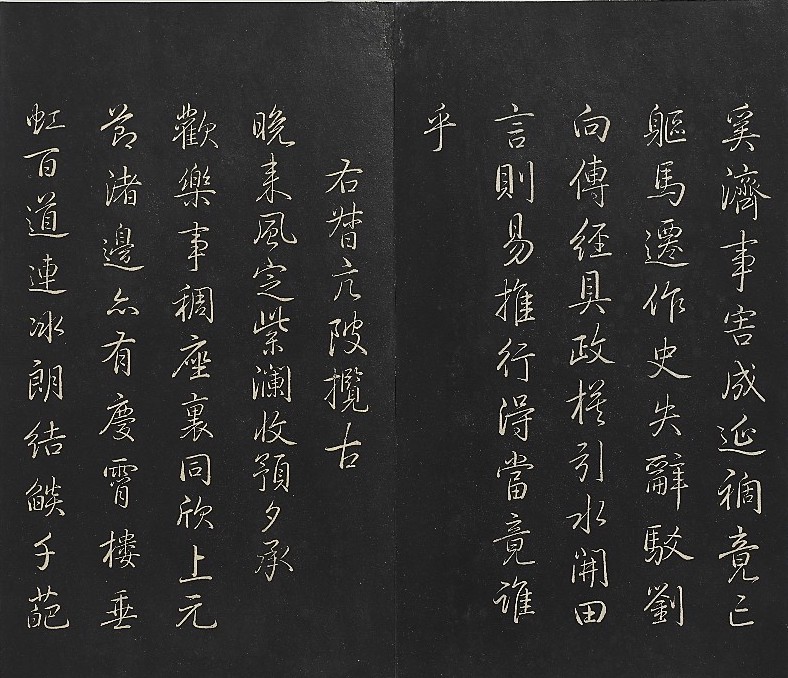 奚濟事害成延禍竟亡
軀馬遷作史失辭駁劉
向傳經具政楑引水開田
言則易推行得當竟誰
乎
右督亢陂攬古
晚来風定紫瀾收預夕承
歡樂事稠座裏同欣上元
節渚邊亦有慶霄樓垂
虹百道連冰朗結燄千葩